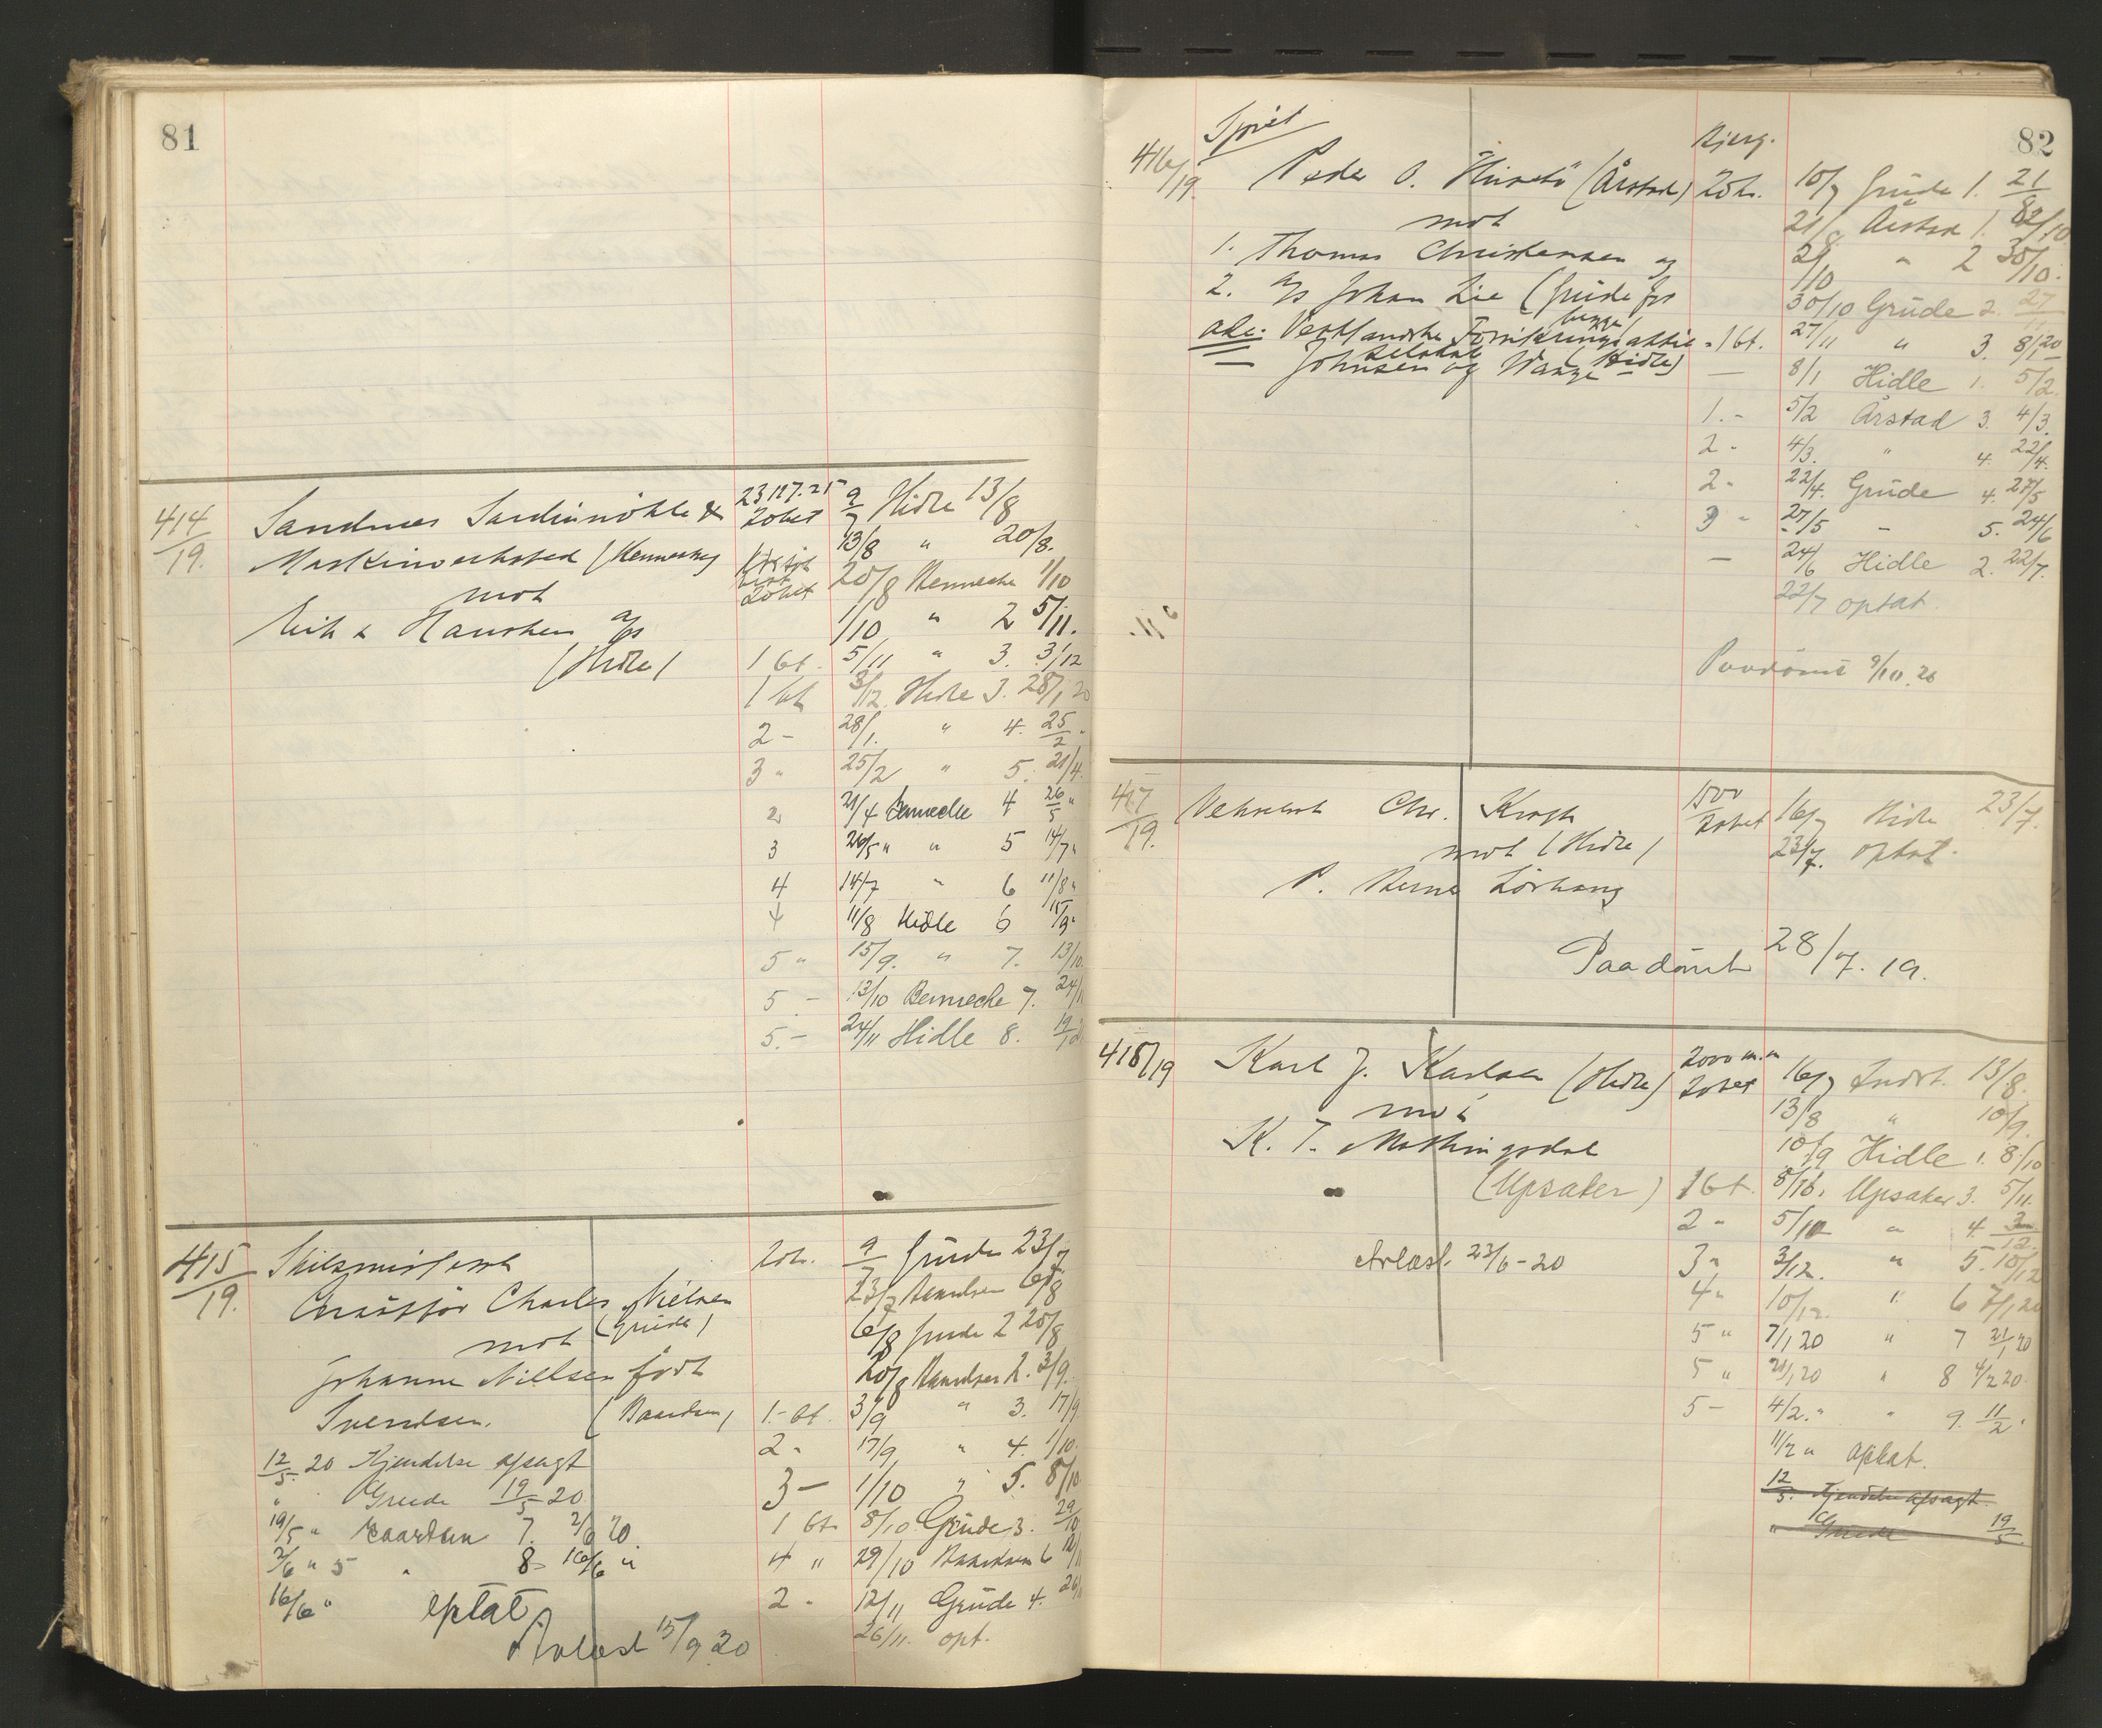 81
414/19. Sandnes & 23 127.25 9/7 Hidle 13/8
Maskinverksted 13/8 " 20/8.
mot 20/8 Bennecke 1/10
1/10 " 2 5/11.
(Hidle) 1 bt. 5/11 " 3. 3/12
1 bt 3/12. Hidle 3. 28/1 20
2 - 28/1. " 4. 25/2 "
3 " 25/2 " 5. 21/4.
2 21/4 Bennecke 4 26/5 "
3 26/5 " " 5 14/7 "
4 14/7 " 6 11/8 "
4 11/8 Hidle 6 15/9 "
5 " 15/9. " 7. 13/10.
5 - 13/10 Bennecke 7. 24/11
5. - 24/11 Hidle 8.
415/19. Skilsmissesak 9/7 Grude 23/7
Charles Nielsen 23/7 Baardsen 6/8
mot (Grude) 6/8 Grude 2 20/8
Johanne Nielsen født 20/8 Baardsen 2. 3/9.
Svendsen. (Baardsen) 1. - bt. 3/9 " 3. 17/9
2 - 17/9 " 4. 1/10.
12/5. 20 Kjendelse afsagt 3 - 1/10 " 5. 8/10.
" Grude 19/5 20 1 bt. 8/10. Grude 3. 29/10.
19/5 " Baardsen 7. 2/6 20. 4 " 29/10 Baardsen 6 12/11
2/6 " 5 " 8 - 16/6 " 2 - 12/11 Grude 4. 26/11
16/6 " optat 26/11. opt.
Avlæst 15/9 20
82
416/19. Peder O. (Årstad) 10/7 Grude 1. 21/8
mot 21/8 Årstad 1.
1. Thomas Christensen og " 2 30/10.
2. a/s Johan Lie (Grude for 30/10 Grude 2. 27/11
begge)
Vestlandske 1 bt. 27/11 " 3. 8/1 20
Johnsen og (Hidle) — 8/1 Hidle 1. 5/2.
1. - 5/2 Årstad 3. 4/3.
2 - 4/3. " 4. 22/4.
2 - 22/4. Grude 4. 27/5
3 - 27/5 - 5. 24/6
— 24/6 Hidle 2. 22/7.
22/7 optat.
Paadömt 9/10. 20
417/19. Chr. Krogh 1500 16/7 Hidle 23/7.
mot (Hidle) 23/7. optat.
P.
Paadömt 28/7. 19.
418/19 Karl J. Karlsen (Hidle) 2000 m.m 16/7 Indst. 13/8.
mot 13/8 " 10/9.
K. T. Mathingsdal 10/9 Hidle 1. 8/10
(Upsaker) 1 bt. 8/10. Upsaker 3. 5/11.
2 - " 4. 3/12.
Avlæst. 23/6 - 20 3 " 3/12. " 5. 10/12
4 " 10/12. " 6 7/1 20
5 " 7/1 20 " 7 21/1 20
5 " 21/1 20 " 8 4/2 20.
5 - 4/2. " " 9. 11/2 "
11/2 " optat.
12/5. Kjendelse afsagt.
" Grude 19/5.